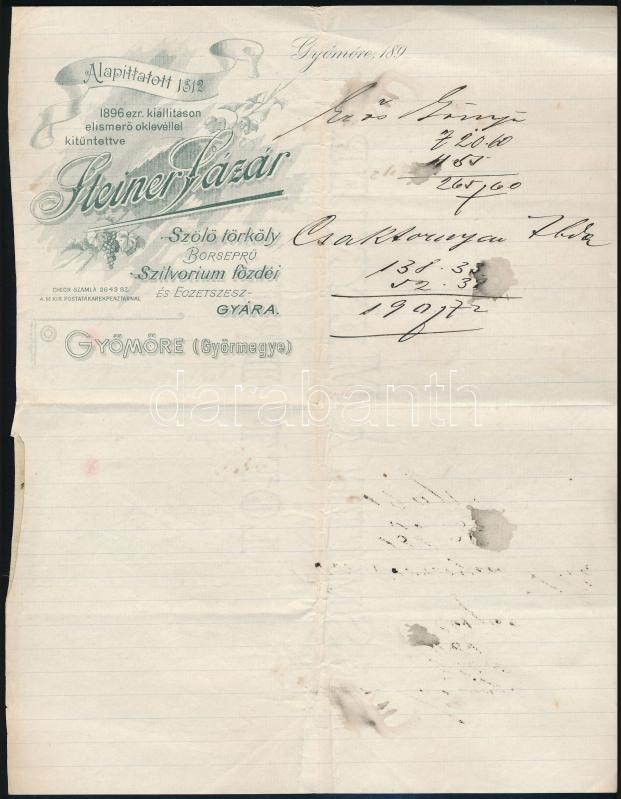 Alapíttatott 1812
Győmőre, 189
1896 ezr. kiállitáson
elismerő oklevéllel
kitüntettve
Steiner Lázár
Szőlő törköly
Borseprű
Szilvorium főzdéi
és Eczetszesz-
GYÁRA.
CHECK SZÁMLA 2643 SZ.
A M. KIR. POSTATAKARÉKPÉNZTÁRNÁL
GYŐMŐRE (Győrmegye)
720.60
265,60
Csaktornyai
138.33
52.39
190,72
darabanth